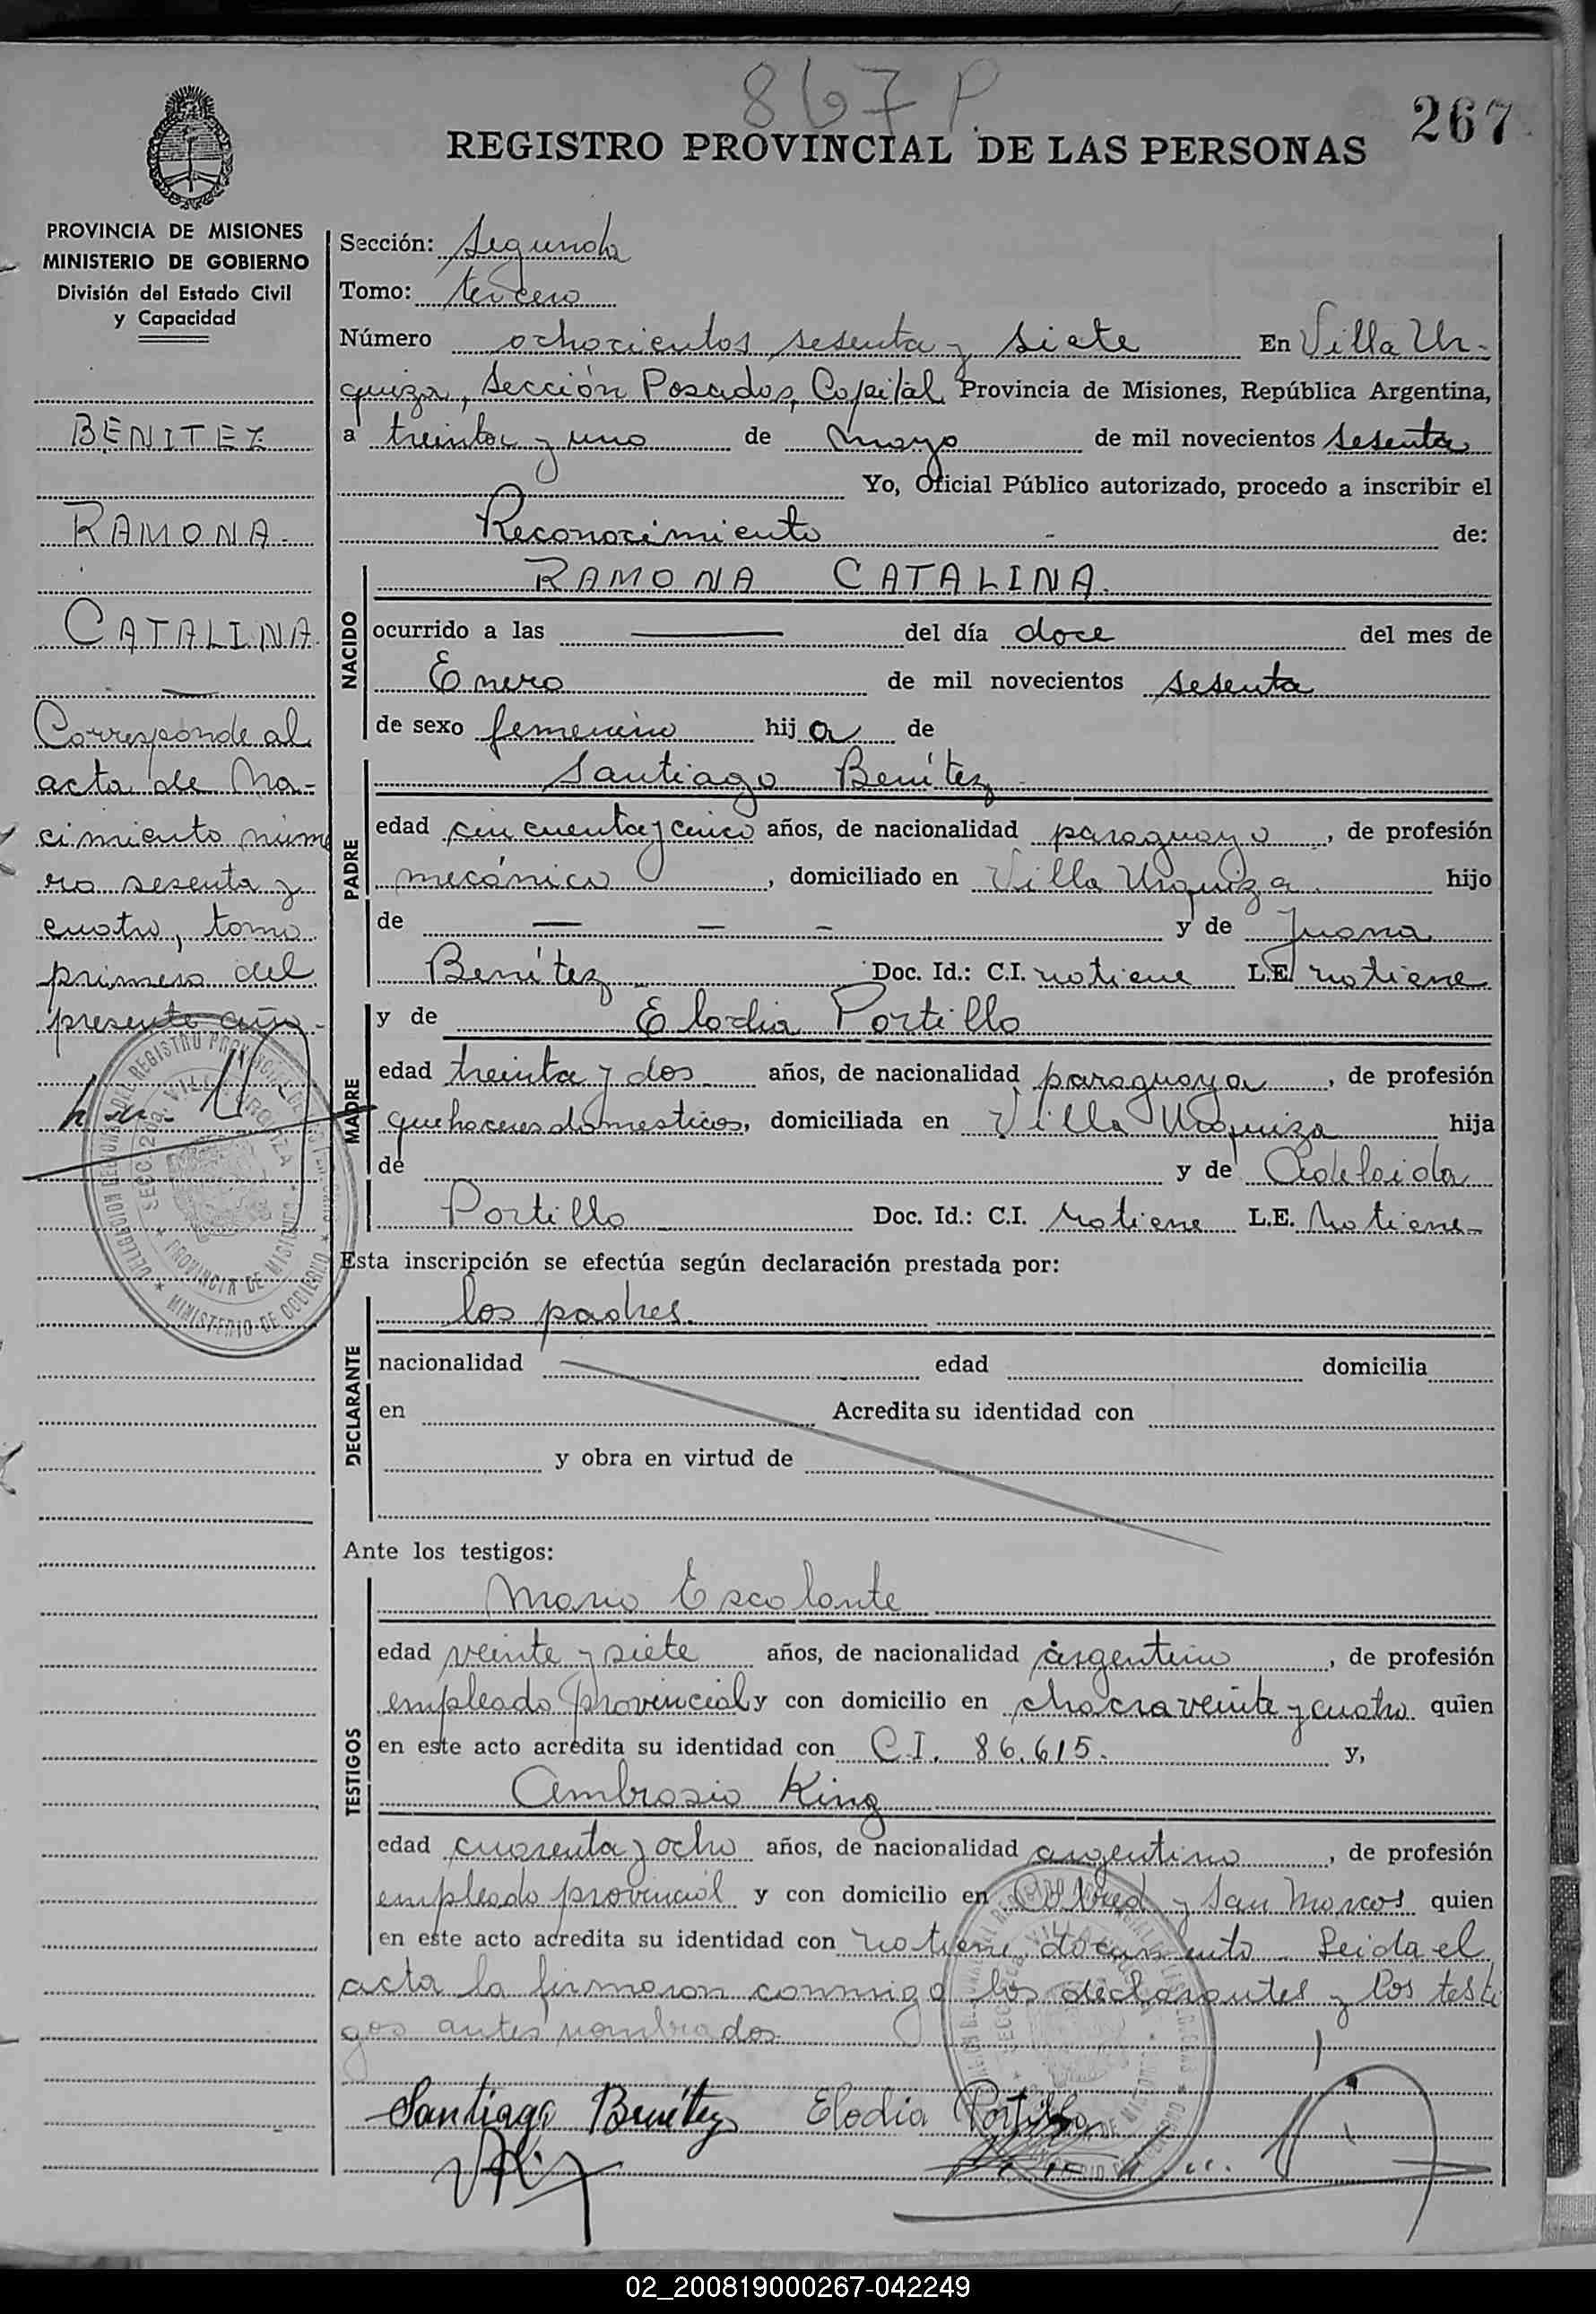 867 P.
267
REGISTRO PROVINCIAL DE LAS PERSONAS
PROVINCIA DE MISIONES
MINISTERIO DE GOBIERNO
División del Estado Civil
y Capacidad
BENITEZ
RAMONA.
CATALINA.
Corresponde al
acta de Na-
cimiento núme
ro sesenta y
cuatro, tomo
primero del
presente año.
Sección: Segunda
Tomo: tercero
Número ochocientos sesenta y siete En Villa Ur-
quiza, Sección Posadas, Capital, Provincia de Misiones, República Argentina,
a treinta y uno de mayo de mil novecientos sesenta
Yo, Oficial Público autorizado, procedo a inscribir el
Reconocimiento - de:
RAMONA CATALINA.
NACIDO
ocurrido a las —— del día doce del mes de
Enero de mil novecientos sesenta
de sexo femenino hij a de
Santiago Benítez
PADRE
edad cincuenta y cinco años, de nacionalidad paraguayo, de profesión
mecánico, domiciliado en Villa Urquiza hijo
de — — — y de Juana
Benítez Doc. Id.: C.I. no tiene L.E. no tiene
MADRE
y de Elodia Portillo
edad treinta y dos años, de nacionalidad paraguaya, de profesión
quehaceres domesticos, domiciliada en Villa Urquiza hija
de y de Adelaida
Portillo Doc. Id.: C.I. No tiene L.E. No tiene-
Esta inscripción se efectúa según declaración prestada por:
DECLARANTE
los padres.
nacionalidad edad domicilia
en Acredita su identidad con
y obra en virtud de
Ante los testigos:
TESTIGOS
Mario Escalante
edad veinte y siete años, de nacionalidad argentino, de profesión
empleado provincial y con domicilio en chacra veinte y cuatro quien
en este acto acredita su identidad con C.I. 86.615. y,
Ambrosio King
edad cuarenta y ocho años, de nacionalidad argentino, de profesión
empleado provincial y con domicilio en y San Marcos quien
en este acto acredita su identidad con no tiene documento. Leida el
acta la firmaron conmigo los declarantes y los testi
gos antes nombrados.
Santiago Benítez Elodia Portillo
02_200819000267-042249